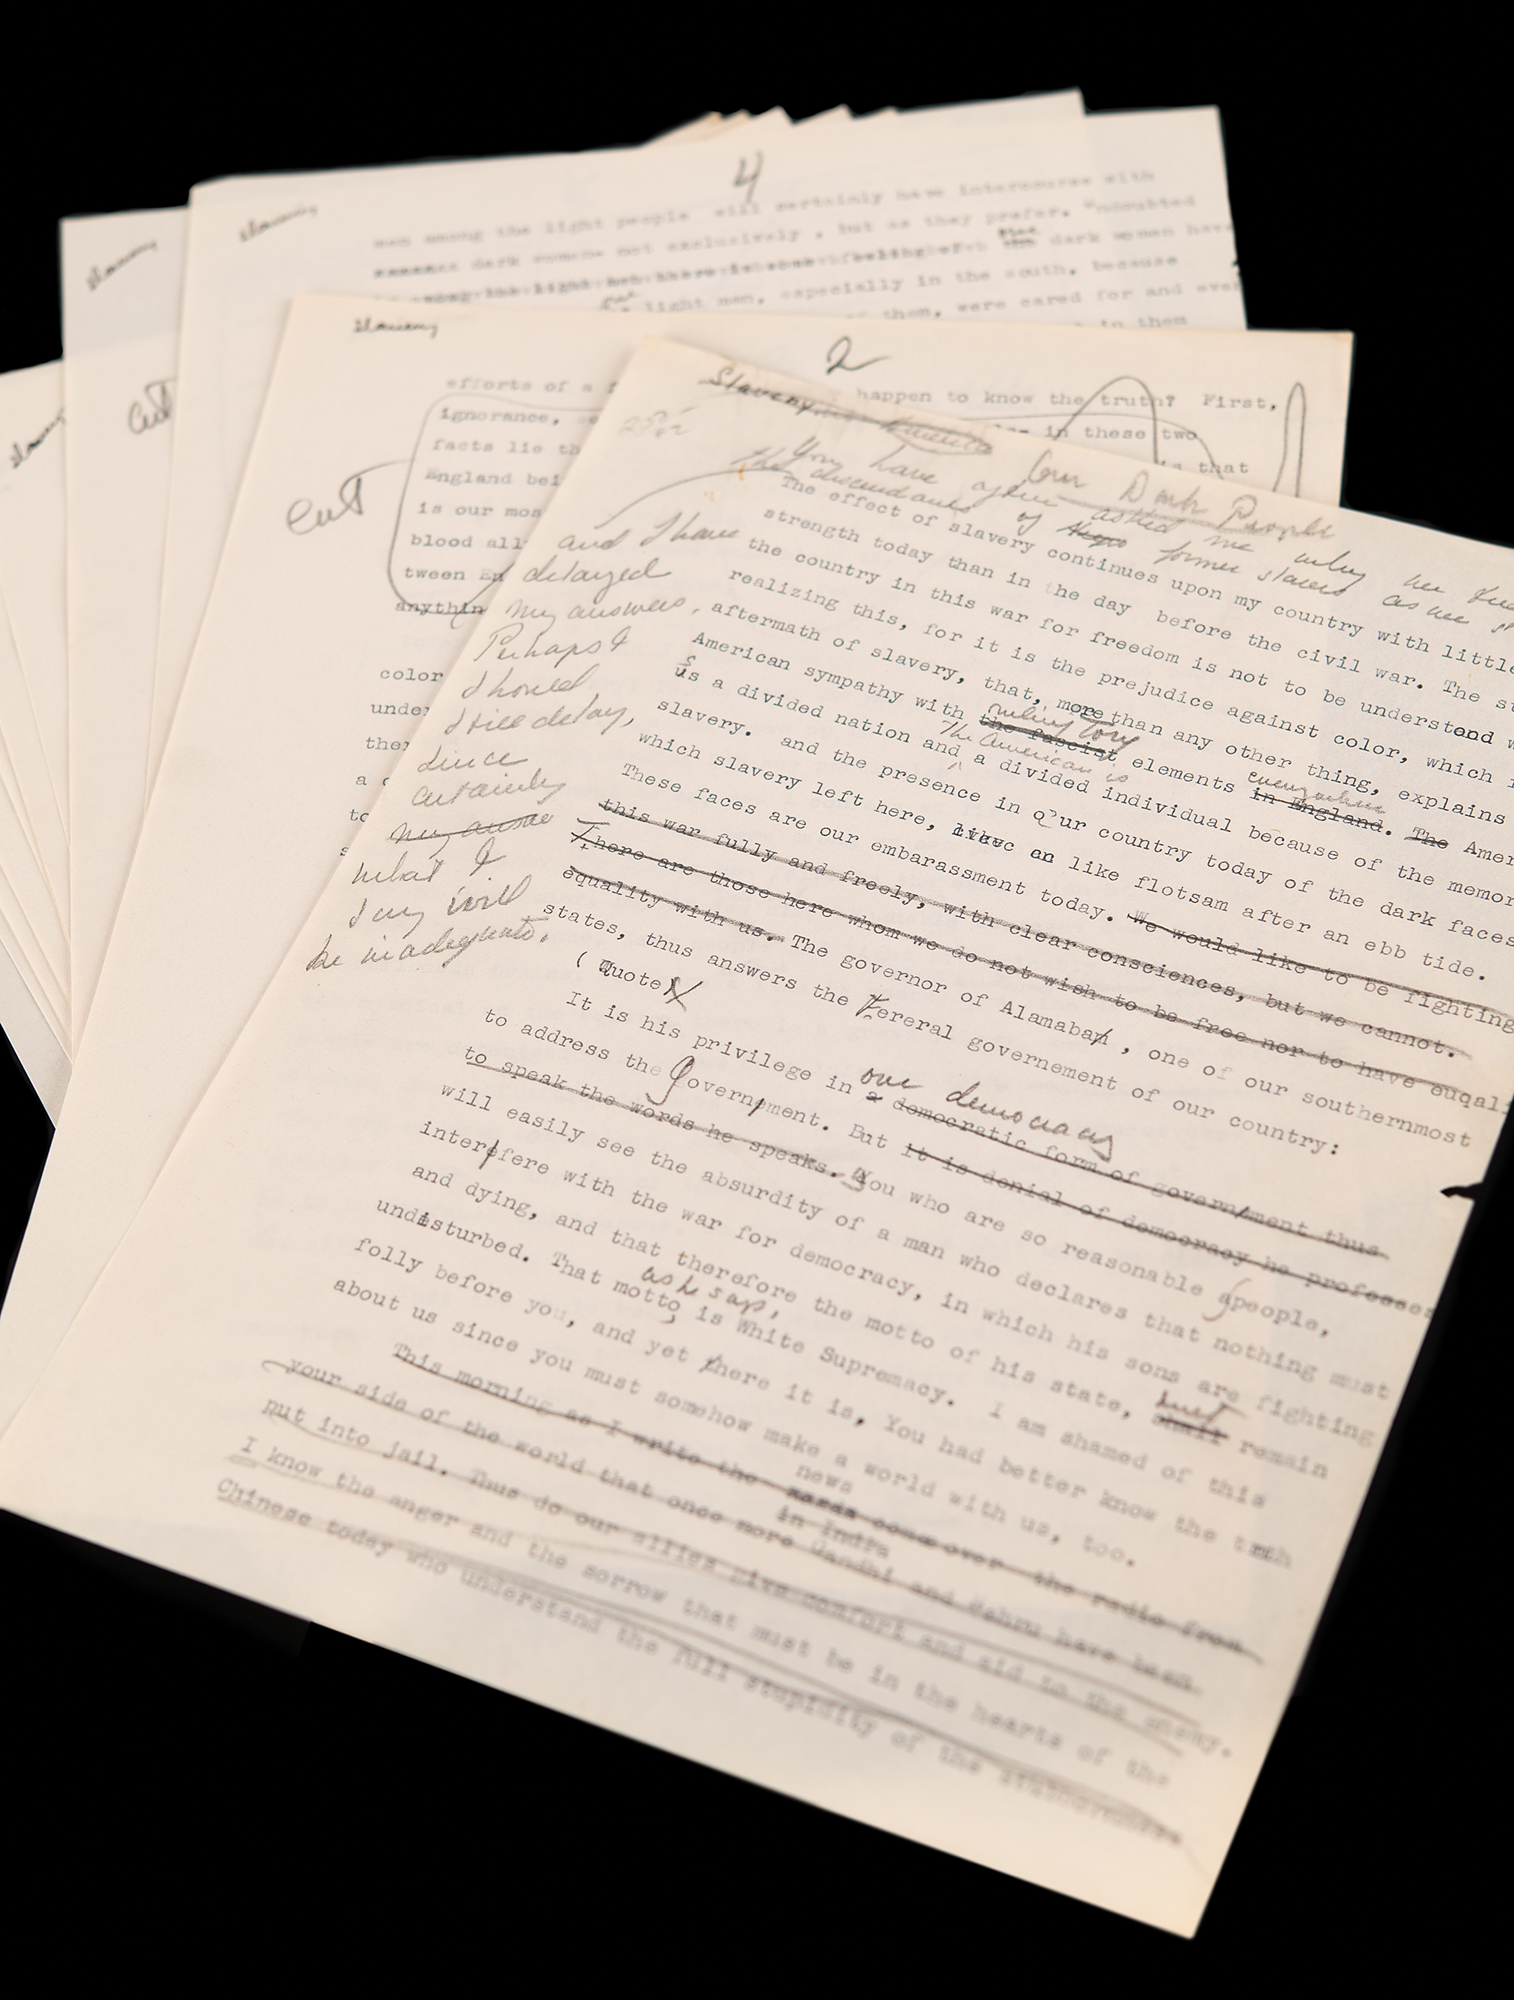 4
men among the light people will certainly have intercourse with
dark women- not exclusively , but as they prefer. Undoubted
dark women have
light men, especially in the south, because
of them, were cared for and
in them
slavery
slavery
slavery
Cut
slavery
2
efforts of a
happen to know the truth? First,
ignorance,
in these two
facts lie th
is that
England bei
is our mos
blood all
tween En
anythin
Cut
color
under
ther
a
to
Slavery in America
Our Dark People
You have often asked me why we
the descendants of former slaves as we
and I have
delayed
my answers,
Perhaps I
should
still delay,
since
certainly
my answe
what I
say will
be inadequate.
The effect of slavery continues upon my country with little
strength today than in the day before the civil war. The
the country in this war for freedom is not to be understood
realizing this, for it is the prejudice against color, which
aftermath of slavery, that, more than any other thing, explains
ruling Tory
everywhere
American sympathy with the fascist elements in England. The Amer
The American is
us a divided nation and a divided individual because of the memor
slavery. and the presence in our country today of the dark faces
which slavery left here, like flotsam after an ebb tide.
These faces are our embarassment today. We would like to be fighting
this war fully and freely, with clear consciences, but we cannot.
There are those here whom we do not wish to be free nor to have euqal
equality with us. The governor of Alamabam , one of our southernmost
states, thus answers the Fereral governement of our country:
( Quote)
our democracy
It is his privilege in a democratic form of government thus
to address the Government. But it is denial of democracy he professes
to speak the words he speaks. You who are so reasonable people,
will easily see the absurdity of a man who declares that nothing must
interfere with the war for democracy, in which his sons are fighting
must
and dying, and that therefore the motto of his state, shall remain
as he says,
undisturbed. That motto is White Supremacy. I am shamed of this
folly before you, and yet there it is, You had better know the truth
about us since you must somehow make a world with us, too.
news
This morning as I write the words come over the radio from
in India
your side of the world that once more Gandhi and Nehru have been
put into jail. Thus do our allies give comfort and aid to the enemy.
I know the anger and the sorrow that must be in the hearts of the
Chinese today who understand the full stupidity of the